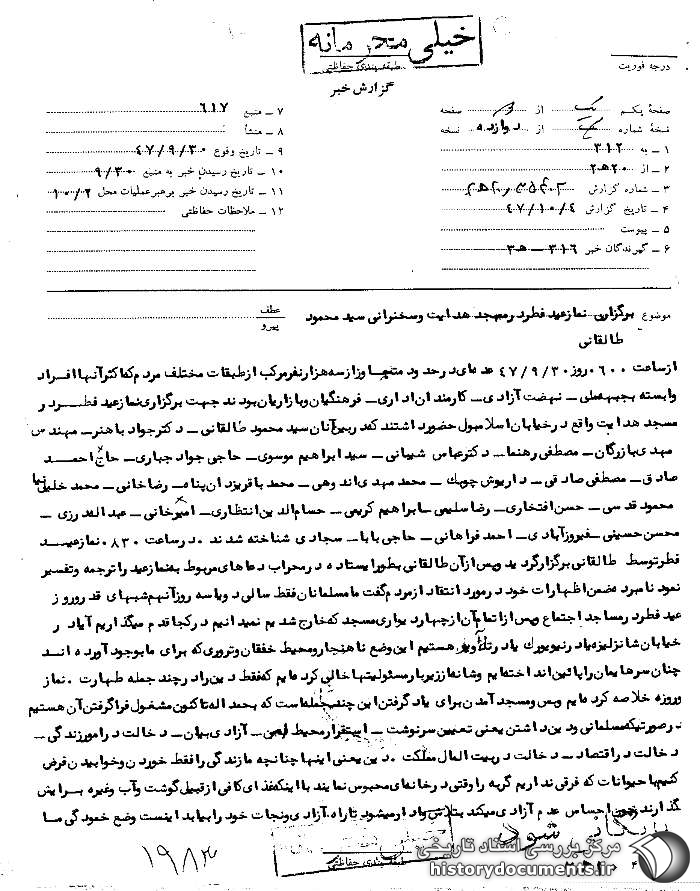 خیلی محرمانه
طبقه بندی حفاظتی
گزارش خبر
درجه فوریت
صفحهٔ یکم یک از صفحه
نسخهٔ شماره از دوازده نسخه
۱ ـ به ۳۱۲
۲ ـ از ۲۰ هـ ۲
۳ ـ شماره گزارش
۴ ـ تاریخ گزارش ۴۷/۱۰/۴
۵ ـ پیوست
۶ ـ گیرندگان خبر ۳۱۶ ـ هـ ۳
۷ ـ منبع ۶۱۷
۸ ـ منشأ
۹ ـ تاریخ وقوع ۴۷/۹/۳۰
۱۰ ـ تاریخ رسیدن خبر به منبع ۹/۳۰
۱۱ ـ تاریخ رسیدن خبر برهبر عملیات محل ۱۰/۲
۱۲ ـ ملاحظات حفاظتی
موضوع برگزاری نماز عید فطر در مسجد هدایت و سخنرانی سید محمود
طالقانی
عطف
پیرو
از ساعت ۰۶۰۰ روز ۴۷/۹/۳۰ عده‌ای در حدود متجاوز از سه هزار نفر مرکب از طبقات مختلف مردم که اکثر آنها افراد
وابسته بجبهه ملی ـ نهضت آزادی ـ کارمندان اداری ـ فرهنگیان و بازاریان بودند جهت برگزاری نماز عید فطر در
مسجد هدایت واقع در خیابان اسلامبول حضور داشتند که در بین آنان سید محمود طالقانی ـ دکتر جواد باهنر ـ مهندس
مهدی بازرگان ـ مصطفی رهنما ـ دکتر عباس شیبانی ـ سید ابراهیم موسوی ـ حاجی جواد جباری ـ حاج احمد
صادق ـ مصطفی صادقی ـ داریوش چوبک ـ محمد مهدی اندوهی ـ محمد باقر یزدان پناه ـ رضا خانی ـ محمد خلیل نیا
محمود قدسی ـ حسن افتخاری ـ رضا سلیمی ـ ابراهیم کریمی ـ حسام الدین انتظاری ـ امیر خانی ـ عبدالله رزی ـ
محسن حسینی ـ فیروز آبادی ـ احمد فراهانی ـ حاجی بابا ـ سجادی شناخته شدند . در ساعت ۰۸۳۰ نماز عید
فطر توسط طالقانی برگزار گردید و پس از آن طالقانی بطور ایستاده در محراب دعاهای مربوط به نماز عید را ترجمه و تفسیر
نمود نامبرده ضمن اظهارات خود در مورد انتقاد از مردم گفت ما مسلمانان فقط سالی دو یا سه روز آنهم شبهای قدر و روز
عید فطر در مساجد اجتماع و پس از اتمام آن از چهار دیواری مسجد که خارج شدیم نمیدانیم در کجا قدم میگذاریم آیا در
خیابان شانزلیزه یا در نیویورک یا در تل‌آویو هستیم این وضع ناهنجار و محیط خفقان و تروری که برای ما بوجود آورده اند
چنان سرهایمان را پائین انداخته‌ایم و شانه از زیر بار مسئولیتها خالی کرده‌ایم که فقط دین را در چند جمله طهارت . نماز
و روزه خلاصه کرده‌ایم و بس و مسجد آمدن برای یاد گرفتن این چند جمله است که بحمد اله تاکنون مشغول فرا گرفتن آن هستیم
در صورتیکه مسلمانی و دین داشتن یعنی تعیین سرنوشت ـ استقرار محیط ایمن ـ آزادی بیان ـ دخالت در امور زندگی ـ
دخالت در اقتصاد ـ دخالت در بیت المال مملکت . دین یعنی اینها چنانچه ما زندگی را فقط خوردن و خوابیدن فرض
کنیم با حیوانات که فرقی نداریم گربه را وقتی در خانه‌ای محبوس نمایند با اینکه غذای کافی از قبیل گوشت و آب و غیره برایش
گذارند چون احساس عدم آزادی میکند بتلاش وادار میشود تا راه آزادی و نجات خود را بیابد اینست وضع خمودگی ما
بایگانی شود
طبقه بندی حفاظتی
۱۹۸۳
مرکز بررسی اسناد تاریخی
historydocuments.ir